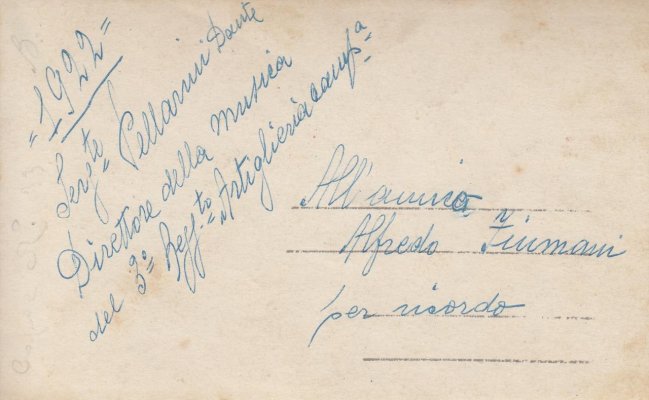 =1922=
Serg.te Pellarini Dante
Direttore della musica
del 3° Regg.to Artiglieria camp.a
All'amico
Alfredo Fiumani
per ricordo